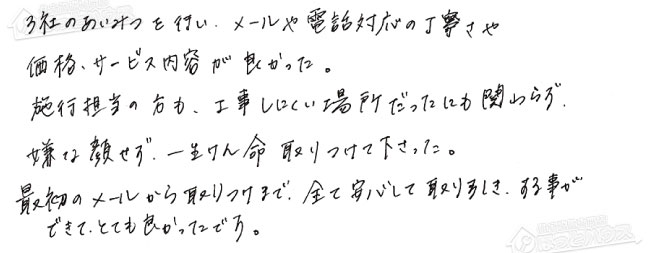 3社のあいみつを行い、メールや電話対応の丁寧さや
価格、サービス内容が良かった。
施行担当の方も、工事しにくい場所だったにも関わらず、
嫌な顔せず、一生けん命取りつけて下さった。
最初のメールから取りつけまで、全て安心して取り引き、する事が
できて、とても良かったです。